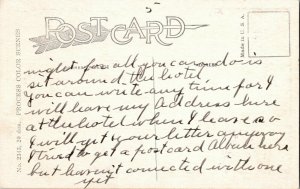 5
POST CARD
MADE IN U.S.A.
No. 2315, 20 des. PROCESS COLOR SCENES
night for all you can do is
set around the hotel
you can write any time for I
will leave my Address here
at the hotel when I leave so
I will get your letter anyway
I tried to get a postcard Album here
but haven't connected with one
yet